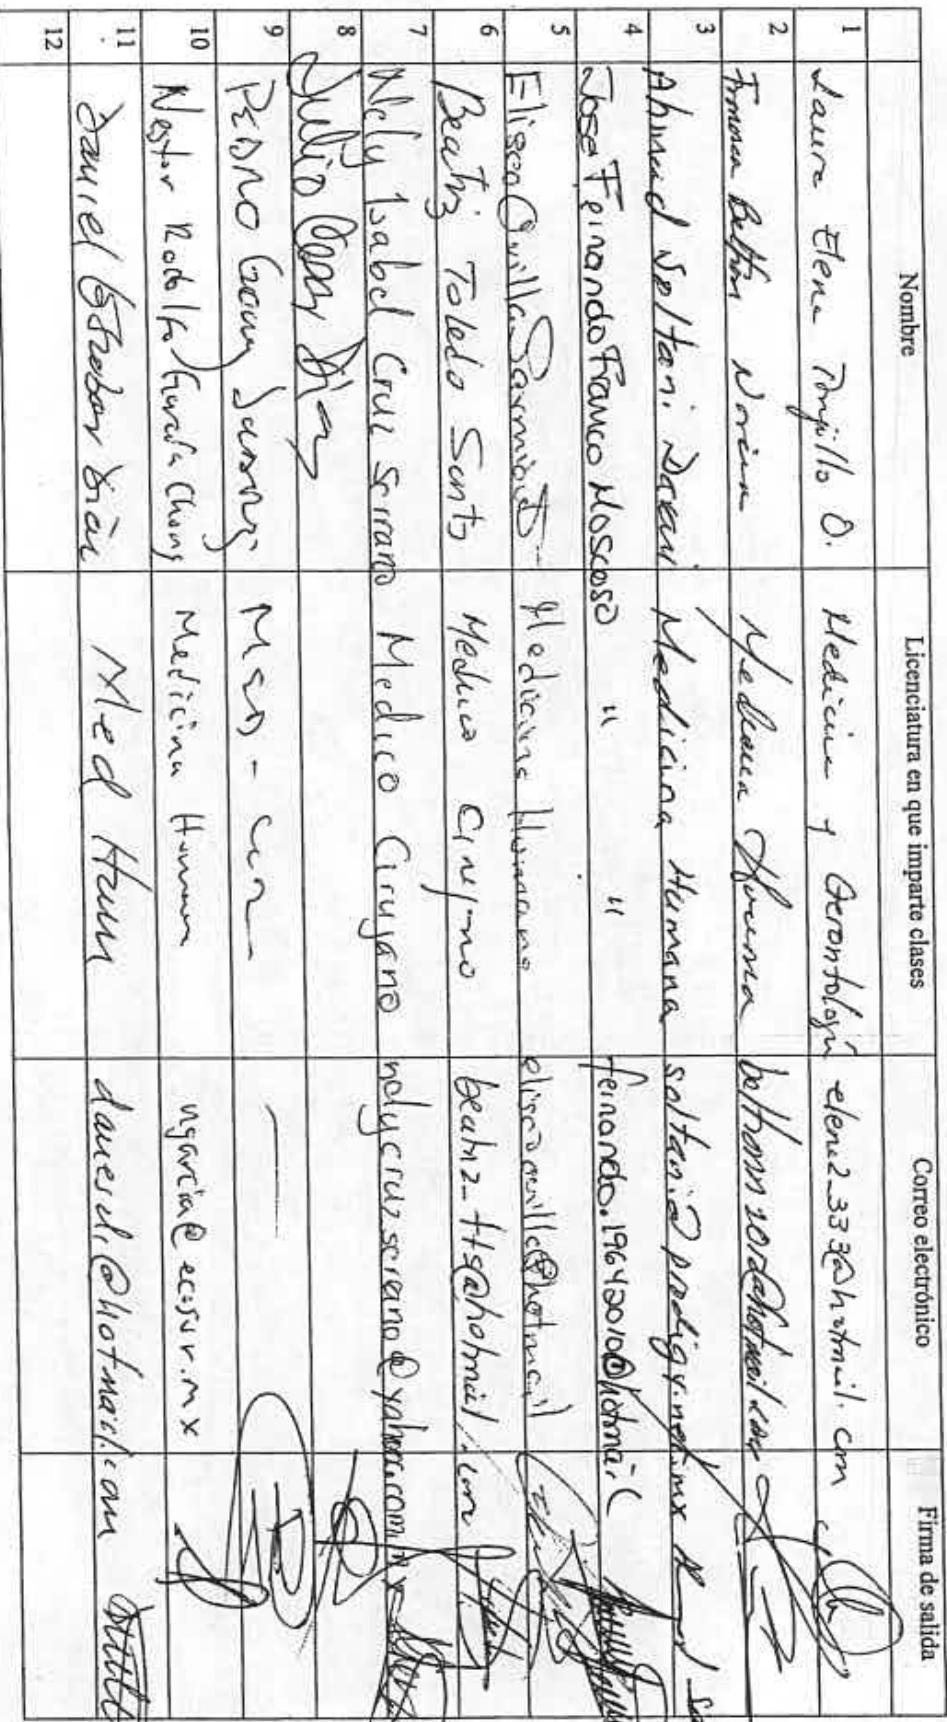 Nombre Licenciatura en que imparte clases Correo electrónico Firma de salida
1 Laura Elena Trujillo O. Medicina y Gerontología elene2_33@hotmail.com
2 Beltrán Medicina Humana
3 Ahmad Soltani Medicina Humana soltani@prodigy.net.mx
4 José Fernando Franco Moscoso " " fernando.19642010@hotmail
5 Eliseo Sarmiento Medicina Humana
6 Beatriz Toledo Santos Medico Cirujano beatriz_tts@hotmail.com
7 Nely Isabel Cruz Serrano Medico Cirujano nelycruzserrano@yahoo.com.mx
8 Julio César Díaz
9 PEDRO
10 Nestor Rodolfo García Chong Medicina Humana ngarcia@ecosur.mx
11 Daniel Estrabar Díaz Med Hum danesdi@hotmail.com
12